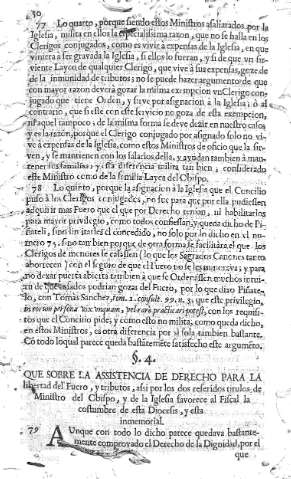 30
77 Lo quarto, porque siendo estos Ministros asalariados por la
Iglesia, milita en ellos la especialissima razon, que no se halla en los
Clerigos conjugados, como es vivir à expensas de la Iglesia, en que
viniera à ser gravada la Iglesia, si ellos lo fueran, y si de que un sir-
viente Layco de qualquier Clerigo, que vive à sus expensas, goze de
de la inmunidad de tributos; no se puede hazer argumento de que
con mayor razon deverà gozar la misma exempcion un Clerigo con-
jugado que tiene Orden, y sirve por asignacion à la Iglesia; ò al
contrario, que si este con este servicio no goza de esta exempcion,
ni aquel tampoco; de la misma forma se deve dezir en nuestro caso;
y es la razon, porque el Clerigo conjugado por asignado solo no vi-
ve à expensas de la Iglesia, como estos Ministros de oficio que la sir-
ven, y se mantienen con los salarios della, y ayudan tambien à man-
tener sus familias; y esta diferencia milita tan bien, considerado
este Ministro como de la familia Layca del Obispo.
78 Lo quinto, porque la asignacion à la Iglesia que el Concilio
puso à los Clerigos conjugados, no fue para que por ella pudiessen
adquirir mas Fuero que el que por Derecho tenian, ni habilitarlos
para mayor privilegio, como todos confiessan, y queda dicho de Fi-
nateli, sino sin
nero 75, sino tan bien porque de otra forma se facilitàra el que los
Clerigos de menores se casassen (lo que los Sagrados Canones tanto
aborrecen) con el seguro de que el Fuero no se les
no dexar puerta abierta tambien à que se Ordenassen muchos
de que casados podrian gozas del Fuero, por lo que dixo Pilate-
lo, con Tomàs Sanchez, tom. 2. consult. 99. n. 3. que este privilegio,
in eorum persona vix unquam, vel rarò practicari potest, con los requisi-
tos que el Concilio pide; y como esto no milita, como queda dicho,
en estos Ministros, es otra diferencia por sì sola tambien bastante.
Cò todo lo qual parece queda bastantemète satisfecho este argumèto.
§. 4.
QUE SOBRE LA ASSISTENCIA DE DERECHO PARA LA
libertad del Fuero, y tributos, assi por los dos referidos titulos de
Ministro del Obispo, y de la Iglesia favorece al Fiscal la
costumbre de esta Diocesis, y esta
inmemorial.
79 AUnque con todo lo dicho parece quedava bastante-
mente comprovado el Derecho de la Dignidad, por el
que